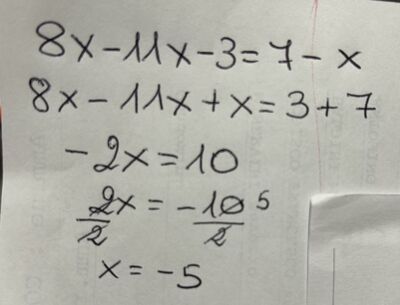 8x-11x-3=7-x
8x-11x+x=3+7
-2x=10
2x/2=-10/2 5
x=-5